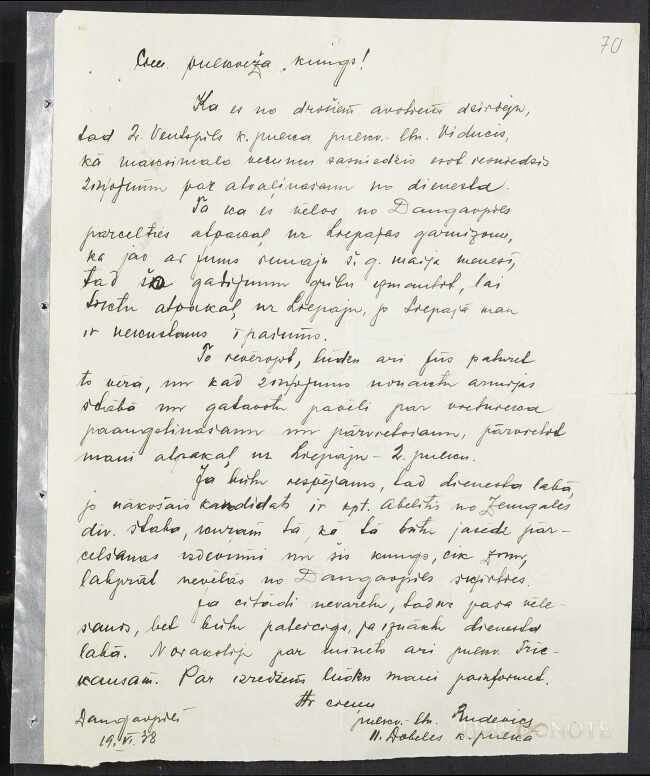 70
Cien. pulkveža kungs!
Kā es no drošiem avotiem dzirdēju,
tad 2. Ventspils k. pulka pulkv.-ltn. Viducis,
kā maksimalo vecumu sasniedzis esot iesniedzis
ziņojumu par atvaļināšanu no dienesta.
Tā kā es vēlos no Daugavpils
pārcelties atpakaļ uz Liepājas garnizonu,
kā jau ar Jums runāju š. g. maija mēnesī,
tad šo gadijumu gribu izmantot, lai
tiktu atpakaļ uz Liepāju, jo Liepājā man
ir nekustams īpašums.
To ievērojot, lūdzu arī Jūs paturēt
to vērā, un kad ziņojums nonāktu armijas
štābā un gatavotu pavēli par virsnieku
paaugstināšanu un pārvietošanu, pārvietot
mani atpakaļ uz Liepāju - 2. pulku.
Ja būtu iespējams, tad dienesta labā,
jo nākošais kandidāts ir kpt. Ābelītis no Zemgales
div. štaba, kuram tā kā tā būtu jāsedz pār-
celšanas izdevumi un šis kungs, cik zinu,
labprāt nevēlās no Daugavpils šķirties.
Ja citādi nevarētu, tad uz paša vēlē-
šanos, bet būtu pateicīgs, ja iznāktu dienesta
labā. Norakstīju par minēto arī pulkv.
Par izredzēm lūdzu mani painformēt.
Ar cieņu
pulkv.-ltn. Rudevics
Daugavpilī
19. VI. 38
k. pulkā